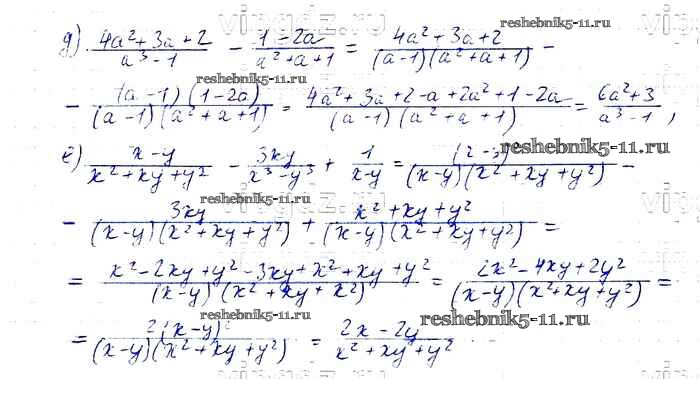 д) (4a² + 3a + 2)/(a³ - 1) - (1 - 2a)/(a² + a + 1) = (4a² + 3a + 2)/((a-1)(a² + a + 1)) -
- ((a - 1)(1 - 2a))/((a - 1)(a² + a + 1)) = (4a² + 3a + 2 - a + 2a² + 1 - 2a)/((a - 1)(a² + a + 1)) = (6a² + 3)/(a³ - 1),
е) (x - y)/(x² + xy + y²) - 3xy/(x³ - y³) + 1/(x - y) = /((x - y)(x² + xy + y²)) -
- 3xy/((x - y)(x² + xy + y²)) + (x² + xy + y²)/((x - y)(x² + xy + y²)) =
= (x² - 2xy + y² - 3xy + x² + xy + y²)/((x - y)(x² + xy + x²)) = (2x² - 4xy + 2y²)/((x - y)(x² + xy + y²)) =
= 2(x - y)²/((x - y)(x² + xy + y²)) = (2x - 2y)/(x² + xy + y²)
reshebnik5-11.ru
reshebnik5-11.ru
reshebnik5-11.ru
reshebnik5-11.ru
reshebnik5-11.ru
reshebnik5-11.ru
reshebnik5-11.ru
reshebnik5-11.ru